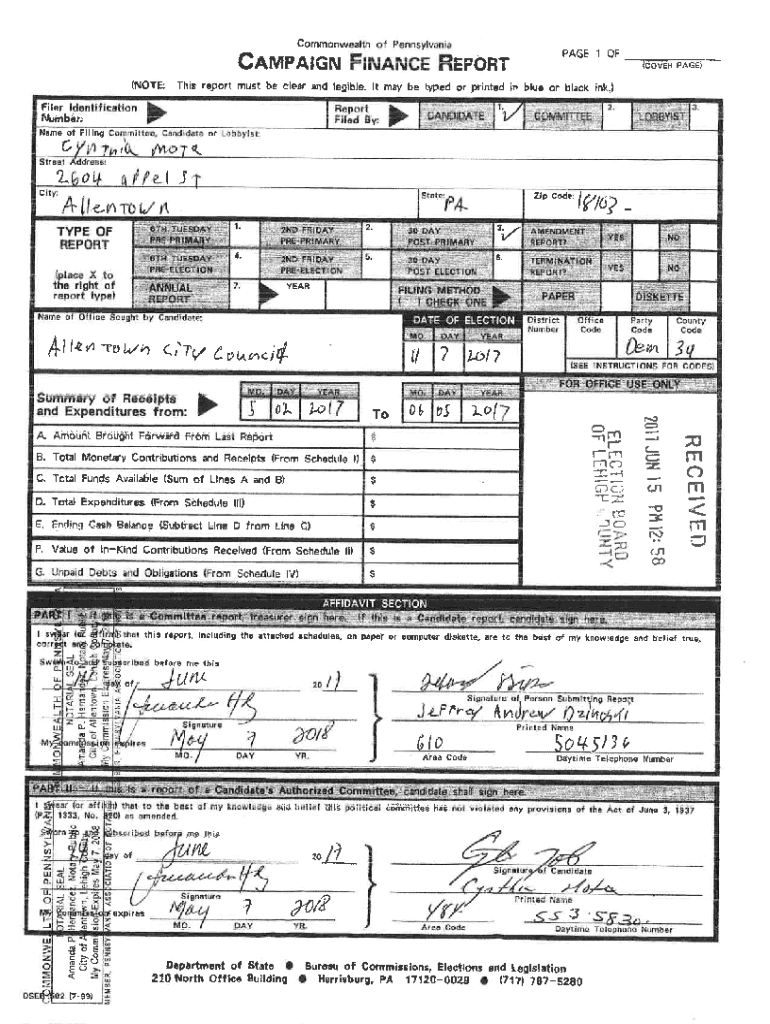 Commonwealth of Pennsylvania
CAMPAIGN FINANCE REPORT
PAGE 1 OF
(COVER PAGE)
(NOTE: This report must be clear and legible. It may be typed or printed in blue or black ink.)
Filer Identification Number:
Report Filed By:
CANDIDATE 1. ✓
COMMITTEE 2.
LOBBYIST 3.
Name of Filing Committee, Candidate or Lobbyist:
Cynthia Mota
Street Address:
2604 appel ST
City: Allentown
State: PA
Zip Code: 18103 -
TYPE OF REPORT
(place X to the right of report type)
6TH TUESDAY PRE-PRIMARY 1.
2ND FRIDAY PRE-PRIMARY 2.
30 DAY POST PRIMARY 3. ✓
AMENDMENT REPORT? YES NO
6TH TUESDAY PRE-ELECTION 4.
2ND FRIDAY PRE-ELECTION 5.
30 DAY POST ELECTION 6.
TERMINATION REPORT? YES NO
ANNUAL REPORT 7.
YEAR
FILING METHOD ( ) CHECK ONE
PAPER
DISKETTE
Name of Office Sought by Candidate:
Allentown City Council
DATE OF ELECTION
MO. DAY YEAR
11 7 2017
District Number
Office Code
Party Code
County Code
Dem 39
(SEE INSTRUCTIONS FOR CODES)
Summary of Receipts and Expenditures from:
MO. DAY YEAR
5 02 2017
To
MO. DAY YEAR
06 05 2017
FOR OFFICE USE ONLY
A. Amount Brought Forward From Last Report $
B. Total Monetary Contributions and Receipts (From Schedule I) $
C. Total Funds Available (Sum of Lines A and B) $
D. Total Expenditures (From Schedule III) $
E. Ending Cash Balance (Subtract Line D from Line C) $
F. Value of In-Kind Contributions Received (From Schedule II) $
G. Unpaid Debts and Obligations (From Schedule IV) $
RECEIVED
2017 JUN 15 PM 12: 58
ELECTION BOARD
OF LEHIGH COUNTY
AFFIDAVIT SECTION
PART I - If this is a Committee report, treasurer sign here. If this is a Candidate report, candidate sign here.
I swear (or affirm) that this report, including the attached schedules, on paper or computer diskette, are to the best of my knowledge and belief true, correct and complete.
Sworn to and subscribed before me this
day of June 2017
Signature
My commission expires May 7 2018
MO. DAY YR.
Signature of Person Submitting Report
Jeffrey Andrew
Printed Name
610 5045136
Area Code Daytime Telephone Number
PART II - If this is a report of a Candidate's Authorized Committee, candidate shall sign here.
I swear (or affirm) that to the best of my knowledge and belief this political committee has not violated any provisions of the Act of June 3, 1937 (P.L. 1333, No. 320) as amended.
Sworn to and subscribed before me this
day of June 2017
Signature
My commission expires May 7 2018
MO. DAY YR.
Signature of Candidate
Cynthia Mota
Printed Name
484 553 5830
Area Code Daytime Telephone Number
COMMONWEALTH OF PENNSYLVANIA
NOTARIAL SEAL
Amanda P. Hernandez, Notary Public
City of Allentown, Lehigh County
My Commission Expires May 7, 2018
MEMBER, PENNSYLVANIA ASSOCIATION OF NOTARIES
Department of State ● Bureau of Commissions, Elections and Legislation
210 North Office Building ● Harrisburg, PA 17120-0029 ● (717) 787-5280
DSEB-502 (7-99)